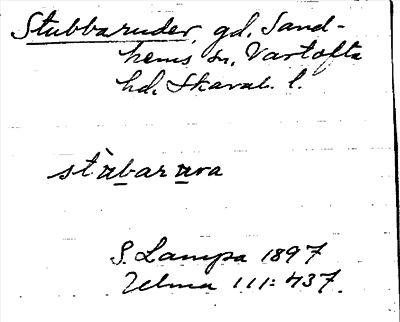 Stubbaruder, gd, Sand-
hems sn, Vartofta
hd, Skarab. l.
stùbarura
S. Lampa 1897
Uelma 111:437.